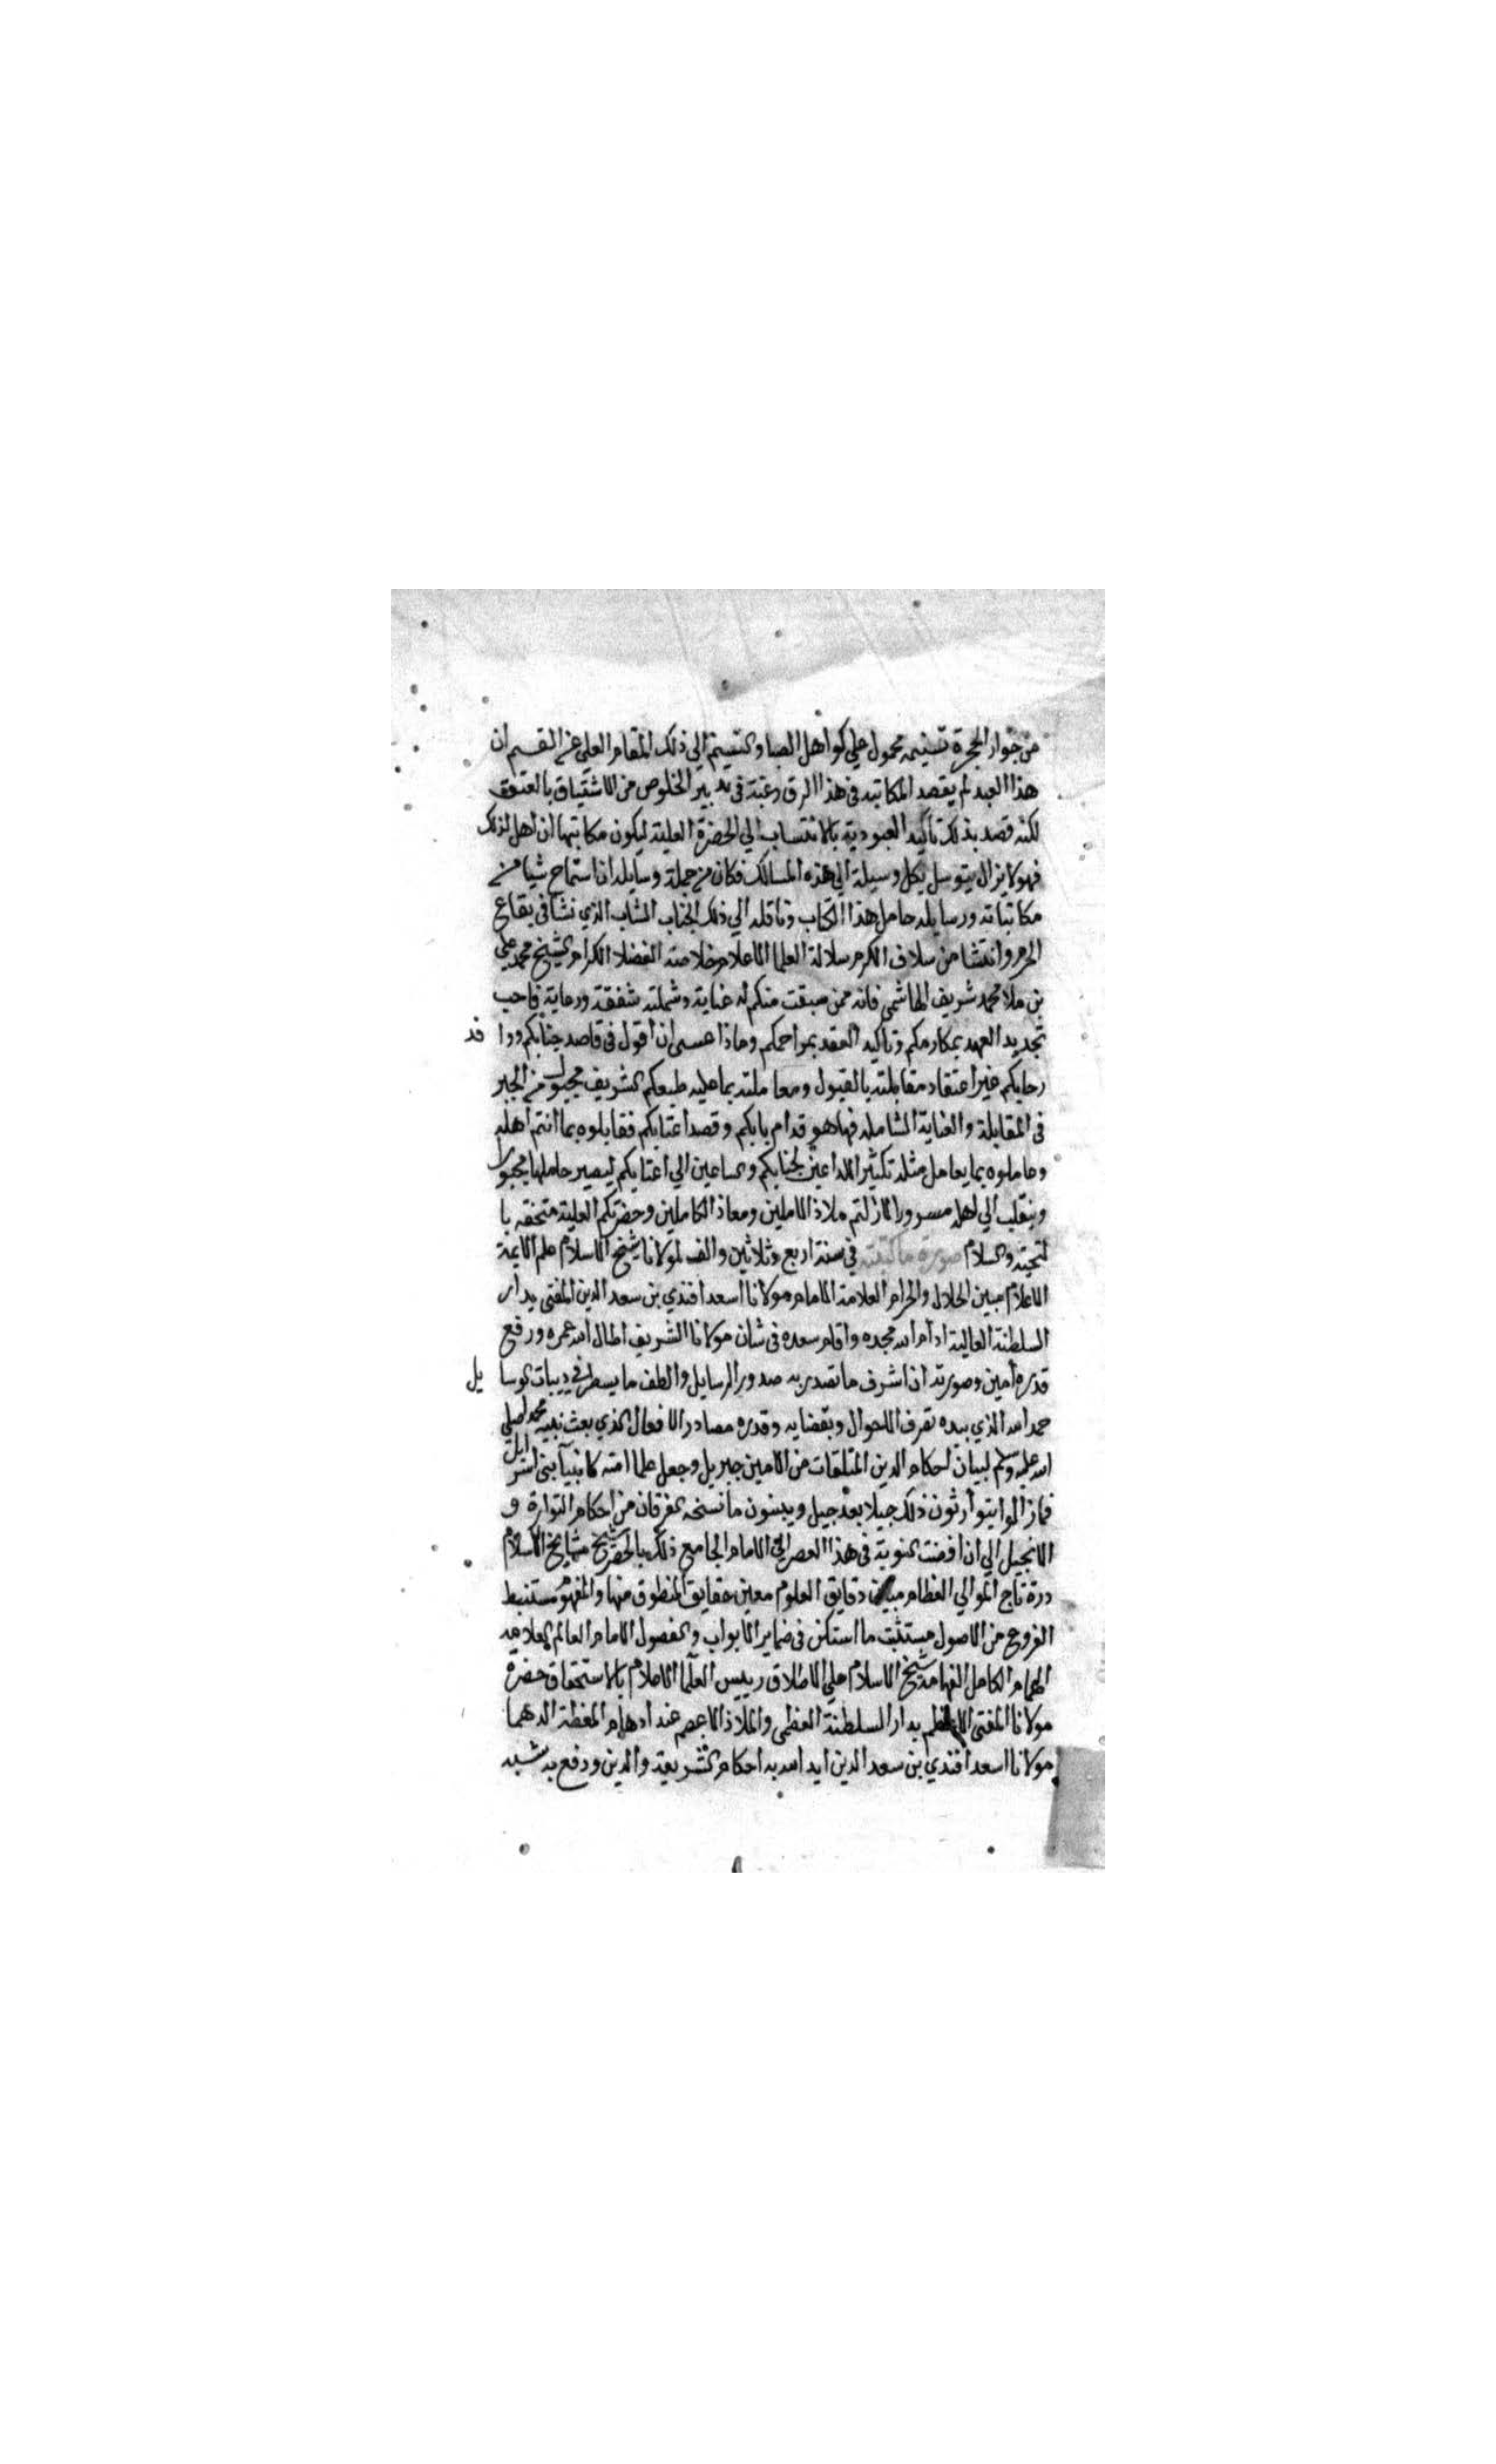 من جوار الحجرة تسنيمه محمول على كواهل الصبا والنسيم الي ذلك المقام العلي عن القسم ان
هذا العبد لم يقصد المكاتبه في هذا الرق رغبة في تدبير الخلوص من الاشتياق بالعتق
لكنه قصد بذلك تاكيد العبودية بالانتساب الي الحضرة العلية ليكون مكاتبها ان اهل لذلك
فهو لا يزال يتوسل بكل وسيلة الي هذه المسالك فكان من جملة وسايله ان استماح شيا من
مكاتباته ورسايله حامل هذا الكتاب وناقله الي ذلك الجناب الشاب الذي نشا في بقاع
الحرم وانتشا من سلاف الكرم سلالة العلما الاعلام خلاصة الفضلا الكرام الشيخ محمد علي
بن ملا محمد شريف الهاشمي فانه ممن سبقت منكم له عناية وشملته شفقة ورعاية فاحب
تجديد العهد بمكارمكم وتاكيد العقد بمراحمكم وماذا عسى ان اقول في قاصد جنابكم ووا فد
رحابكم غير اعتقاد مقابلته بالقبول ومعاملته بما عليه طبعكم الشريف مجبول من الجبر
في المقابلة والعناية الشاملة فهاهو قدام بابكم وقصد اعتابكم فقابلوه بما انتم اهله
وعاملوه بما يعامل مثله تكثير الداعين لجنابكم والساعين الي اعتابكم ليصير حاملها مجبورا
وينقلب الي اهله مسرورا لازلتم ملاذ الاملين ومعاذ الكاملين وحضرتكم العلية متحفه با
لتحية والسلام صورة ما كتبته في سنة اربع وثلاثين والف لمولانا شيخ الاسلام علم الايمة
الاعلام مبين الحلال والحرام العلامة الامام مولانا اسعد افندي بن سعد الدين المفتى بدار
السلطنة العالية ادام الله مجده واقام سعده في شان مولانا الشريف اطال الله عمره ورفع
قدره امين وصورته ان اشرف ما تصدر به صدور الرسايل والطف ما يسطر في ديباجات الوسا يل
حمد الله الذي بيده تصرف الاحوال وبقضايه وقدره مصادر الافعال الذي بعث نبيه محمدا صلى
الله عليه وسلم لبيان احكام الدين المتلقات من الامين جبريل وجعل علما امته كانبيآ بني اسرايل
فما زالوا يتوارثون ذلك جيلا بعد جيل ويبينون ما نسخه الفرقان من احكام التوارة و
الانجيل الي ان افضت النوبة في هذا العصر الي الامام الجامع ذلك بالحصر شيخ مشايخ الاسلام
درة تاج الموالي العظام مبين دقايق العلوم معين حقايق المنطوق منها والمفهوم مستنبط
الفروع من الاصول مستثبت ما استكن في ضماير الابواب والفصول الامام العالم العلامه
الهمام الكامل الفهامه شيخ الاسلام علي الاطلاق رييس العلما الاعلام بالاستحقاق حضرة
مولانا المفتى الاعظم بدار السلطنة العظمى والملاذ الاعصم عند ادهام المعظة الدهما
مولانا اسعد افندي بن سعد الدين ايد الله به احكام الشريعة والدين ودفع به شبه